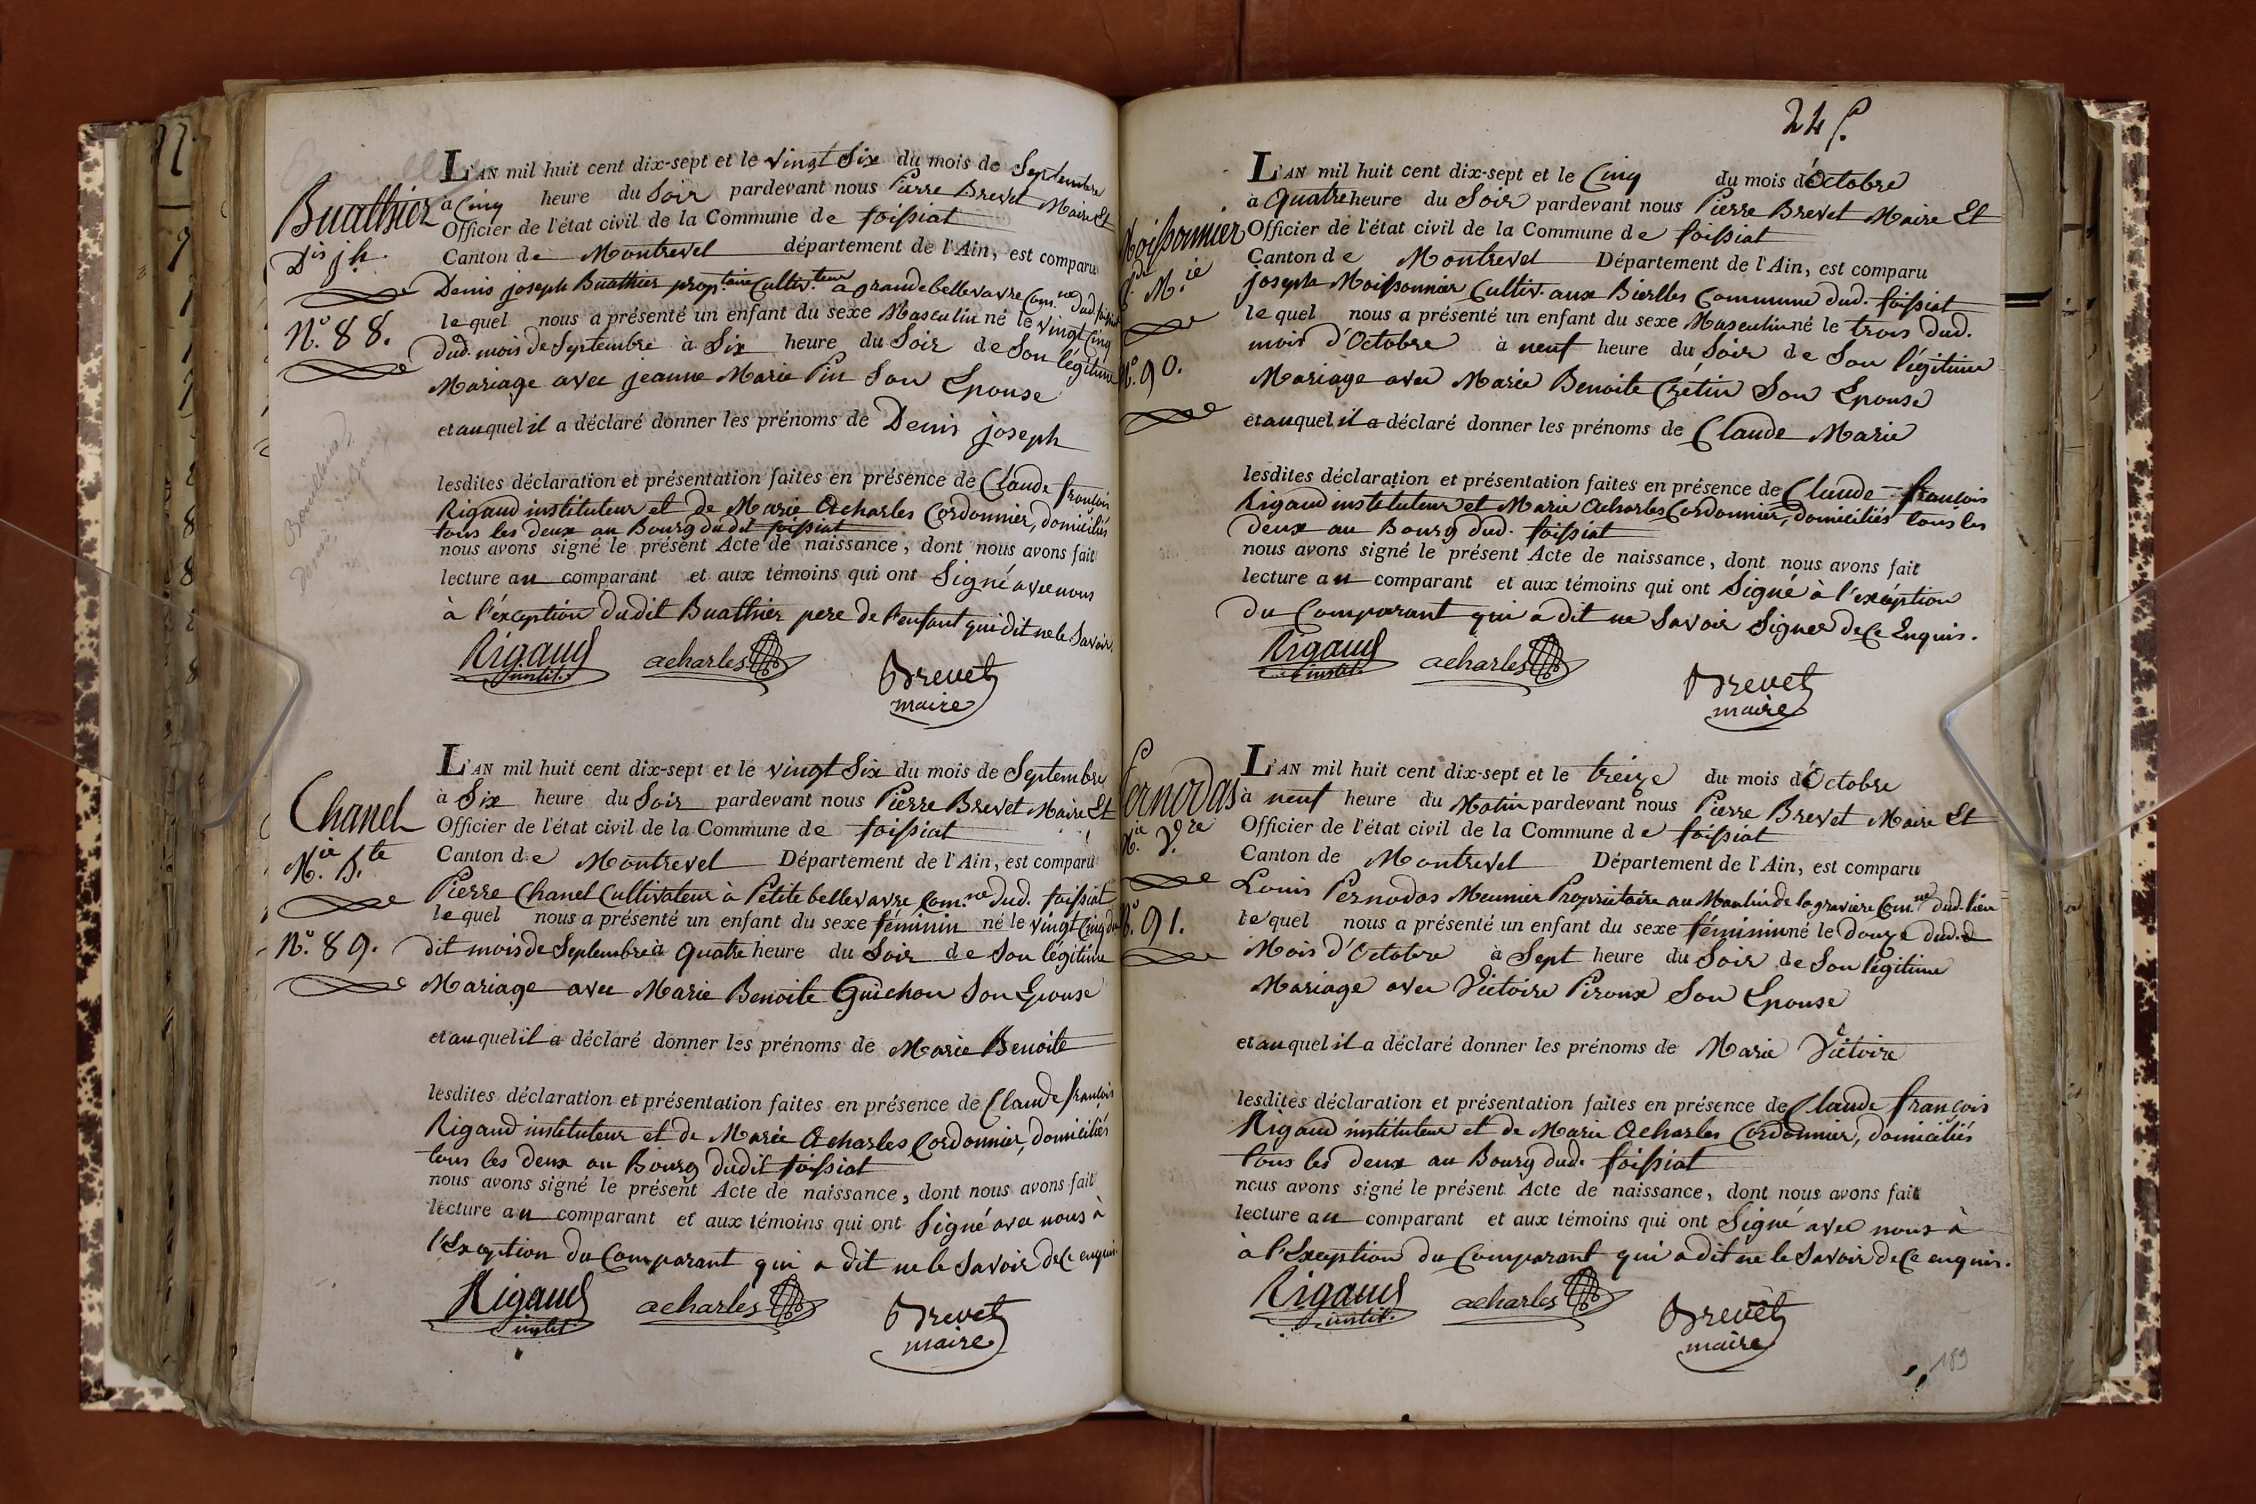 Buathier
Dis jh.
N.º 88.
L'AN mil huit cent dix-sept et le vingt Six du mois de Septembre
à Cinq heure du Soir pardevant nous Pierre Brevet Maire Et
Officier de l'état civil de la Commune de foissiat
Canton de Montrevel département de l'Ain, est comparu
Denis joseph Buathier prop.taire Cultiv.teur a grande bellevavre Com.ne dud. foissiat
lequel nous a présenté un enfant du sexe Masculin né le vingt Cinq
dud. mois de Septembre à Six heure du Soir de Son légitime
Mariage avec jeanne Marie Pin Son Epouse
et auquel il a déclaré donner les prénoms de Denis joseph
lesdites déclaration et présentation faites en présence de Claude françois
Rigaud instituteur et de Marie Acharles Cordonnier, domiciliés
tous les deux au Bourg dudit foissiat
nous avons signé le présent Acte de naissance, dont nous avons fait
lecture au comparant et aux témoins qui ont Signé avec nous
à l'éxception dudit Buathier pere de l'enfant qui dit ne le Savoir.
Rigaud
instit.
acharles
Brevet
maire
Chanel
M.ie B.te
N.º 89.
L'AN mil huit cent dix-sept et le vingt Six du mois de Septembre
à Six heure du Soir pardevant nous Pierre Brevet Maire Et
Officier de l'état civil de la Commune de foissiat
Canton de Montrevel Département de l'Ain, est comparu
Pierre Chanel Cultivateur à Petite bellevavre Com.ne dud. foissiat
lequel nous a présenté un enfant du sexe féminin né le vingt Cinq du
dit mois de Septembre à Quatre heure du Soir de Son légitime
Mariage avec Marie Benoite Guichon Son Epouse
et auquel il a déclaré donner les prénoms de Marie Benoite
lesdites déclaration et présentation faites en présence de Claude françois
Rigaud instituteur et de Marie Acharles Cordonnier, domiciliés
tous les deux au Bourg dudit foissiat
nous avons signé le présent Acte de naissance, dont nous avons fait
lecture au comparant et aux témoins qui ont Signé avec nous à
l'Exception du Comparant qui a dit ne le Savoir de Ce enquis.
Rigaud
instit.
acharles
Brevet
maire
24
Moissonnier
C.de M.ie
N.º 90.
L'AN mil huit cent dix-sept et le Cinq du mois d'Octobre
à Quatre heure du Soir pardevant nous Pierre Brevet Maire Et
Officier de l'état civil de la Commune de foissiat
Canton de Montrevel Département de l'Ain, est comparu
joseph Moissonnier Cultiv. aux Bielles Commune dud. foissiat
lequel nous a présenté un enfant du sexe Masculin né le trois dud.
mois d'Octobre à neuf heure du Soir de Son légitime
Mariage avec Marie Benoite Crétin Son Epouse
et auquel il a déclaré donner les prénoms de Claude Marie
lesdites déclaration et présentation faites en présence de Claude françois
Rigaud instituteur et Marie Acharles Cordonnier, domiciliés tous les
deux au Bourg dud. foissiat
nous avons signé le présent Acte de naissance, dont nous avons fait
lecture au comparant et aux témoins qui ont Signé à l'exéption
du Comparant qui a dit ne Savoir Signer de Ce Enquis.
Rigaud
instit.
acharles
Brevet
maire
Pernodas
M.ie V.re
N.º 91.
L'AN mil huit cent dix-sept et le treize du mois d'Octobre
à neuf heure du Matin pardevant nous Pierre Brevet Maire Et
Officier de l'état civil de la Commune de foissiat
Canton de Montrevel Département de l'Ain, est comparu
Louis Pernodas Meunier Propriétaire au Moulin de la graviere Com.ne dud. lieu
lequel nous a présenté un enfant du sexe féminin né le douze dud.
Mois d'Octobre à Sept heure du Soir de Son légitime
Mariage avec Victoire Piroux Son Epouse
et auquel il a déclaré donner les prénoms de Marie Victoire
lesdites déclaration et présentation faites en présence de Claude françois
Rigaud instituteur et de Marie Acharles Cordonnier, domiciliés
tous les deux au Bourg dud. foissiat
nous avons signé le présent Acte de naissance, dont nous avons fait
lecture au comparant et aux témoins qui ont Signé avec nous à
à l'Exception du Comparant qui a dit ne le Savoir de Ce enquis.
Rigaud
instit.
acharles
Brevet
maire
189